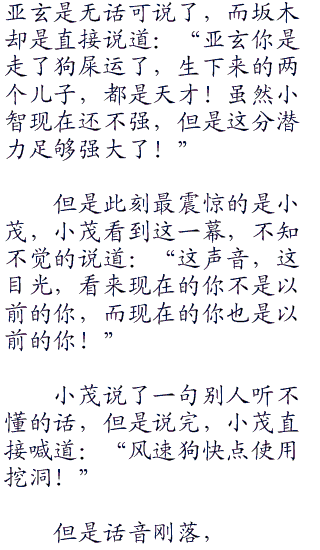 亚玄是无话可说了，而坂木
却是直接说道：“亚玄你是
走了狗屎运了，生下来的两
个儿子，都是天才！虽然小
智现在还不强，但是这分潜
力足够强大了！”
但是此刻最震惊的是小
茂，小茂看到这一幕，不知
不觉的说道：“这声音，这
目光，看来现在的你不是以
前的你，而现在的你也是以
前的你！”
小茂说了一句别人听不
懂的话，但是说完，小茂直
接喊道：“风速狗快点使用
挖洞！”
但是话音刚落，